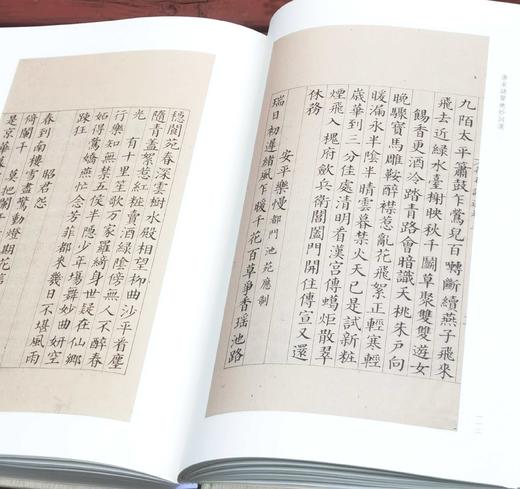 唐宋諸賢絕妙詞選
九陌太平簫鼓乍鶯兒百囀斷續燕子飛來
飛去近綠水臺榭映秋千鬬草聚雙雙遊女
餳香更酒冷踏青路會暗識夭桃朱戶向
晚驟寶馬雕鞍醉襟惹亂花飛絮正輕寒輕
暖漏永半陰半晴雲暮禁火天已是試新粧
歲華到三分佳處清明看漢宮傳蠟炬散翠
煙飛入槐府歛兵衛閶闔門開住傳宣又還
休務
安平樂慢 都門池苑應制
瑞日初遲緒風乍暖千花百草爭香瑤池路
穩閬苑春深雲樹水殿相望柳曲沙平看塵
隨青蓋絮惹紅粧賣酒綠陰傍無人不醉春
光 有十里笙歌萬家羅綺身世疑在仙鄉
行樂知無禁五侯半隱少年場舞妙曲妍空
妬得鶯嬌燕忙念芳菲都來幾日不堪風雨
踈狂
昭君怨
春到南樓雪盡驚動燈期花信
倚闌干 莫把闌干
是京華暮